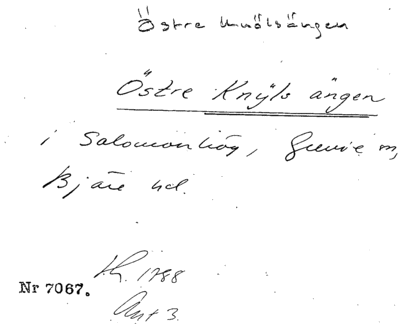 Östre Knölsängen
Östre Knÿls ängen
i Salomonhög, Grevie m,
Bjäre hd.
Lh. 1788
Nr 7067.
Akt 3.